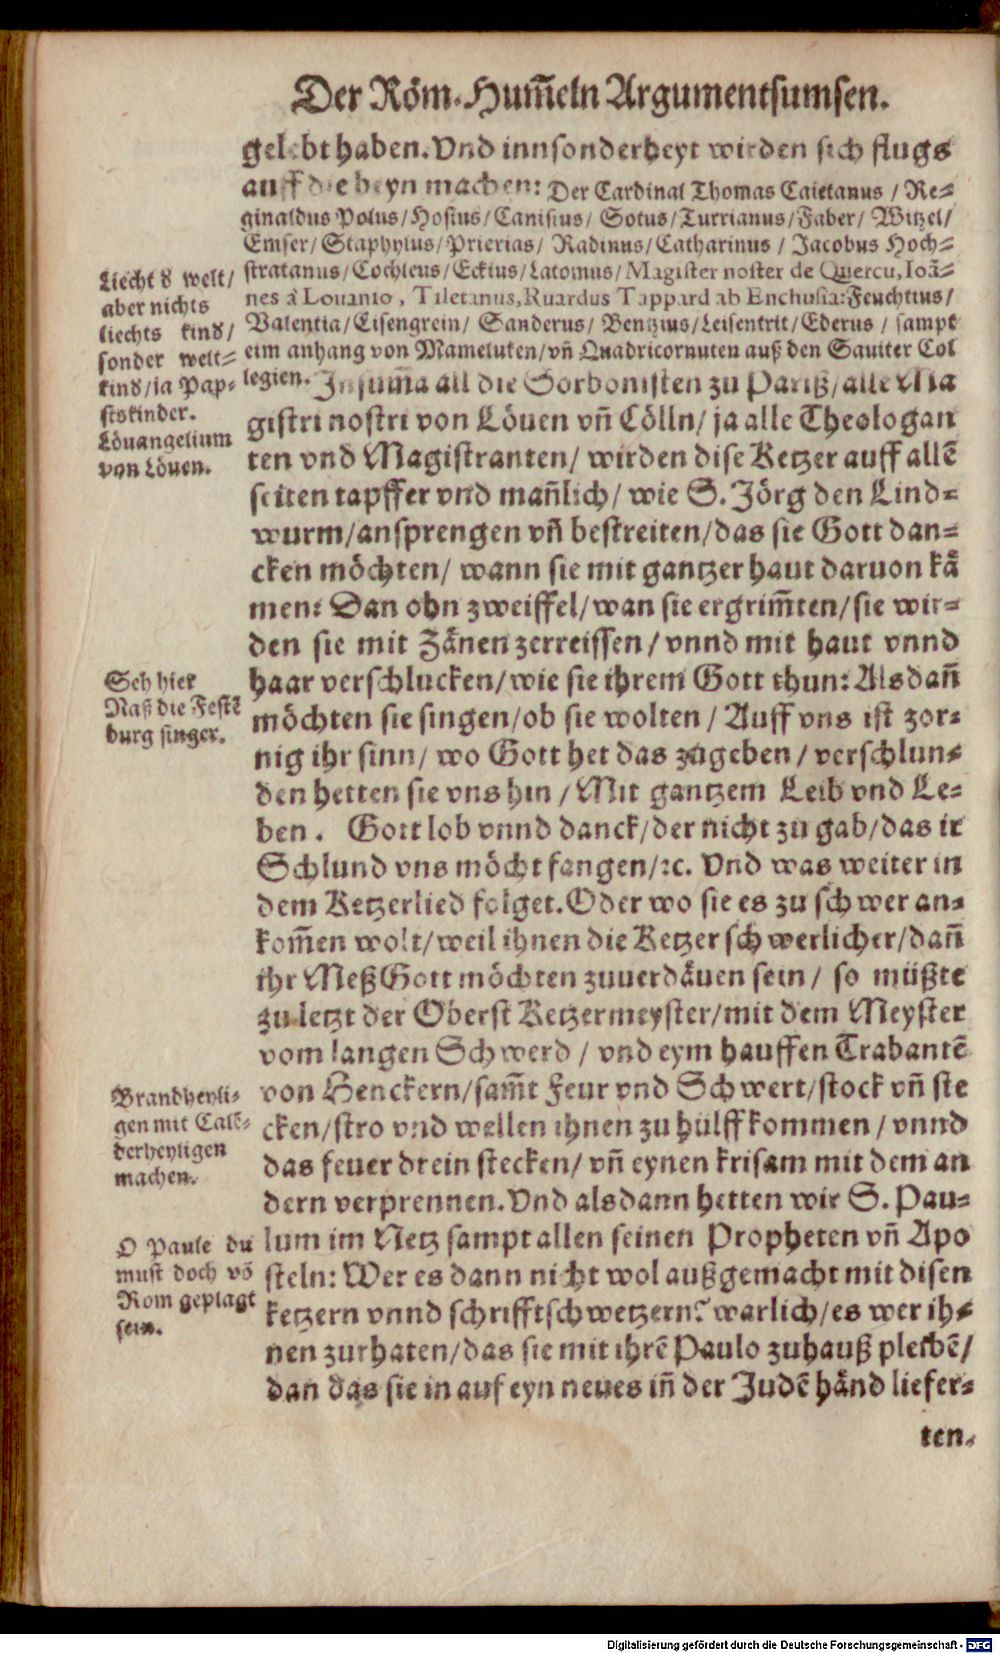 Der Röm. Hum̃eln Argumentsumsen.
gelebt haben. Vnd innsonderheyt wirden sich flugs
auff die beyn machen: Der Cardinal Thomas Caietanus / Re=
ginaldus Polus/ Hosius/ Canisius/ Sotus/ Turrianus/ Faber/ Witzel/
Emser/ Staphylus/ Prierias/ Radinus/ Catharinus / Jacobus Hoch=
stratanus/ Cochleus/ Eckius/ Latomus/ Magister noster de Quercu, Ioã=
nes à Louanio, Tiletanus, Ruardus Tappard ab Enchusia: Feuchtius/
Valentia/ Eisengrein/ Sanderus/ Bentzius/ Leisentrit/ Ederus / sampt
eim anhang von Mameluken/ vñ Quadricornuten auß den Sauiter Col
legien. In sum̃a all die Sorbonisten zu Pariß/ alle Ma
gistri nostri von Löuen vñ Cölln/ ja alle Theologan
ten vnd Magistranten/ wirden dise Ketzer auff allẽ
seiten tapffer vnd mañlich/ wie S. Jörg den Lind=
wurm/ ansprengen vñ bestreiten/ das sie Gott dan=
cken möchten/ wann sie mit gantzer haut daruon kä
men: Dan ohn zweiffel/ wan sie ergrim̃ten/ sie wir=
den sie mit Zänen zerreissen/ vnnd mit haut vnnd
haar verschlucken/ wie sie ihrem Gott thun: Alsdañ
möchten sie singen/ ob sie wolten / Auff vns ist zor=
nig ihr sinn/ wo Gott het das zugeben / verschlun=
den hetten sie vns hin / Mit gantzem Leib vnd Le=
ben. Gott lob vnnd danck/ der nicht zu gab/ das ir
Schlund vns möcht fangen/ ꝛc. Vnd was weiter in
dem Ketzerlied folget. Oder wo sie es zu schwer an=
kom̃en wolt/ weil ihnen die Ketzer schwerlicher/ dañ
ihr Meß Gott möchten zuuerdäuen sein / so müßte
zu letzt der Oberst Ketzermeyster/ mit dem Meyster
vom langen Schwerd / vnd eym hauffen Trabantẽ
von Henckern/ sam̃t Feur vnd Schwert/ stock vñ ste
cken/ stro vnd wellen ihnen zu hülff kommen / vnnd
das feuer drein stecken/ vñ eynen krisam mit dem an
dern verprennen. Vnd alsdann hetten wir S. Pau=
lum im Netz sampt allen seinen Propheten vñ Apo
steln: Wer es dann nicht wol außgemacht mit disen
ketzern vnnd schrifftschwetzern? warlich/ es wer ih=
nen zurhaten/ das sie mit ihrẽ Paulo zuhauß pleibẽ/
dan das sie in auf eyn neues iñ der Judẽ händ liefer=
ten.
Liecht d welt/
aber nichts
liechts kind/
sonder welt=
kind/ ja Pap=
stskinder.
Löuangelium
von Löuen.
Seh hier
Naß die Festẽ
burg singer.
Brandheyli=
gen mit Calẽ=
derheyligen
machen.
O Paule du
must doch võ
Rom geplagt
sein.
Digitalisierung gefördert durch die Deutsche Forschungsgemeinschaft - DFG